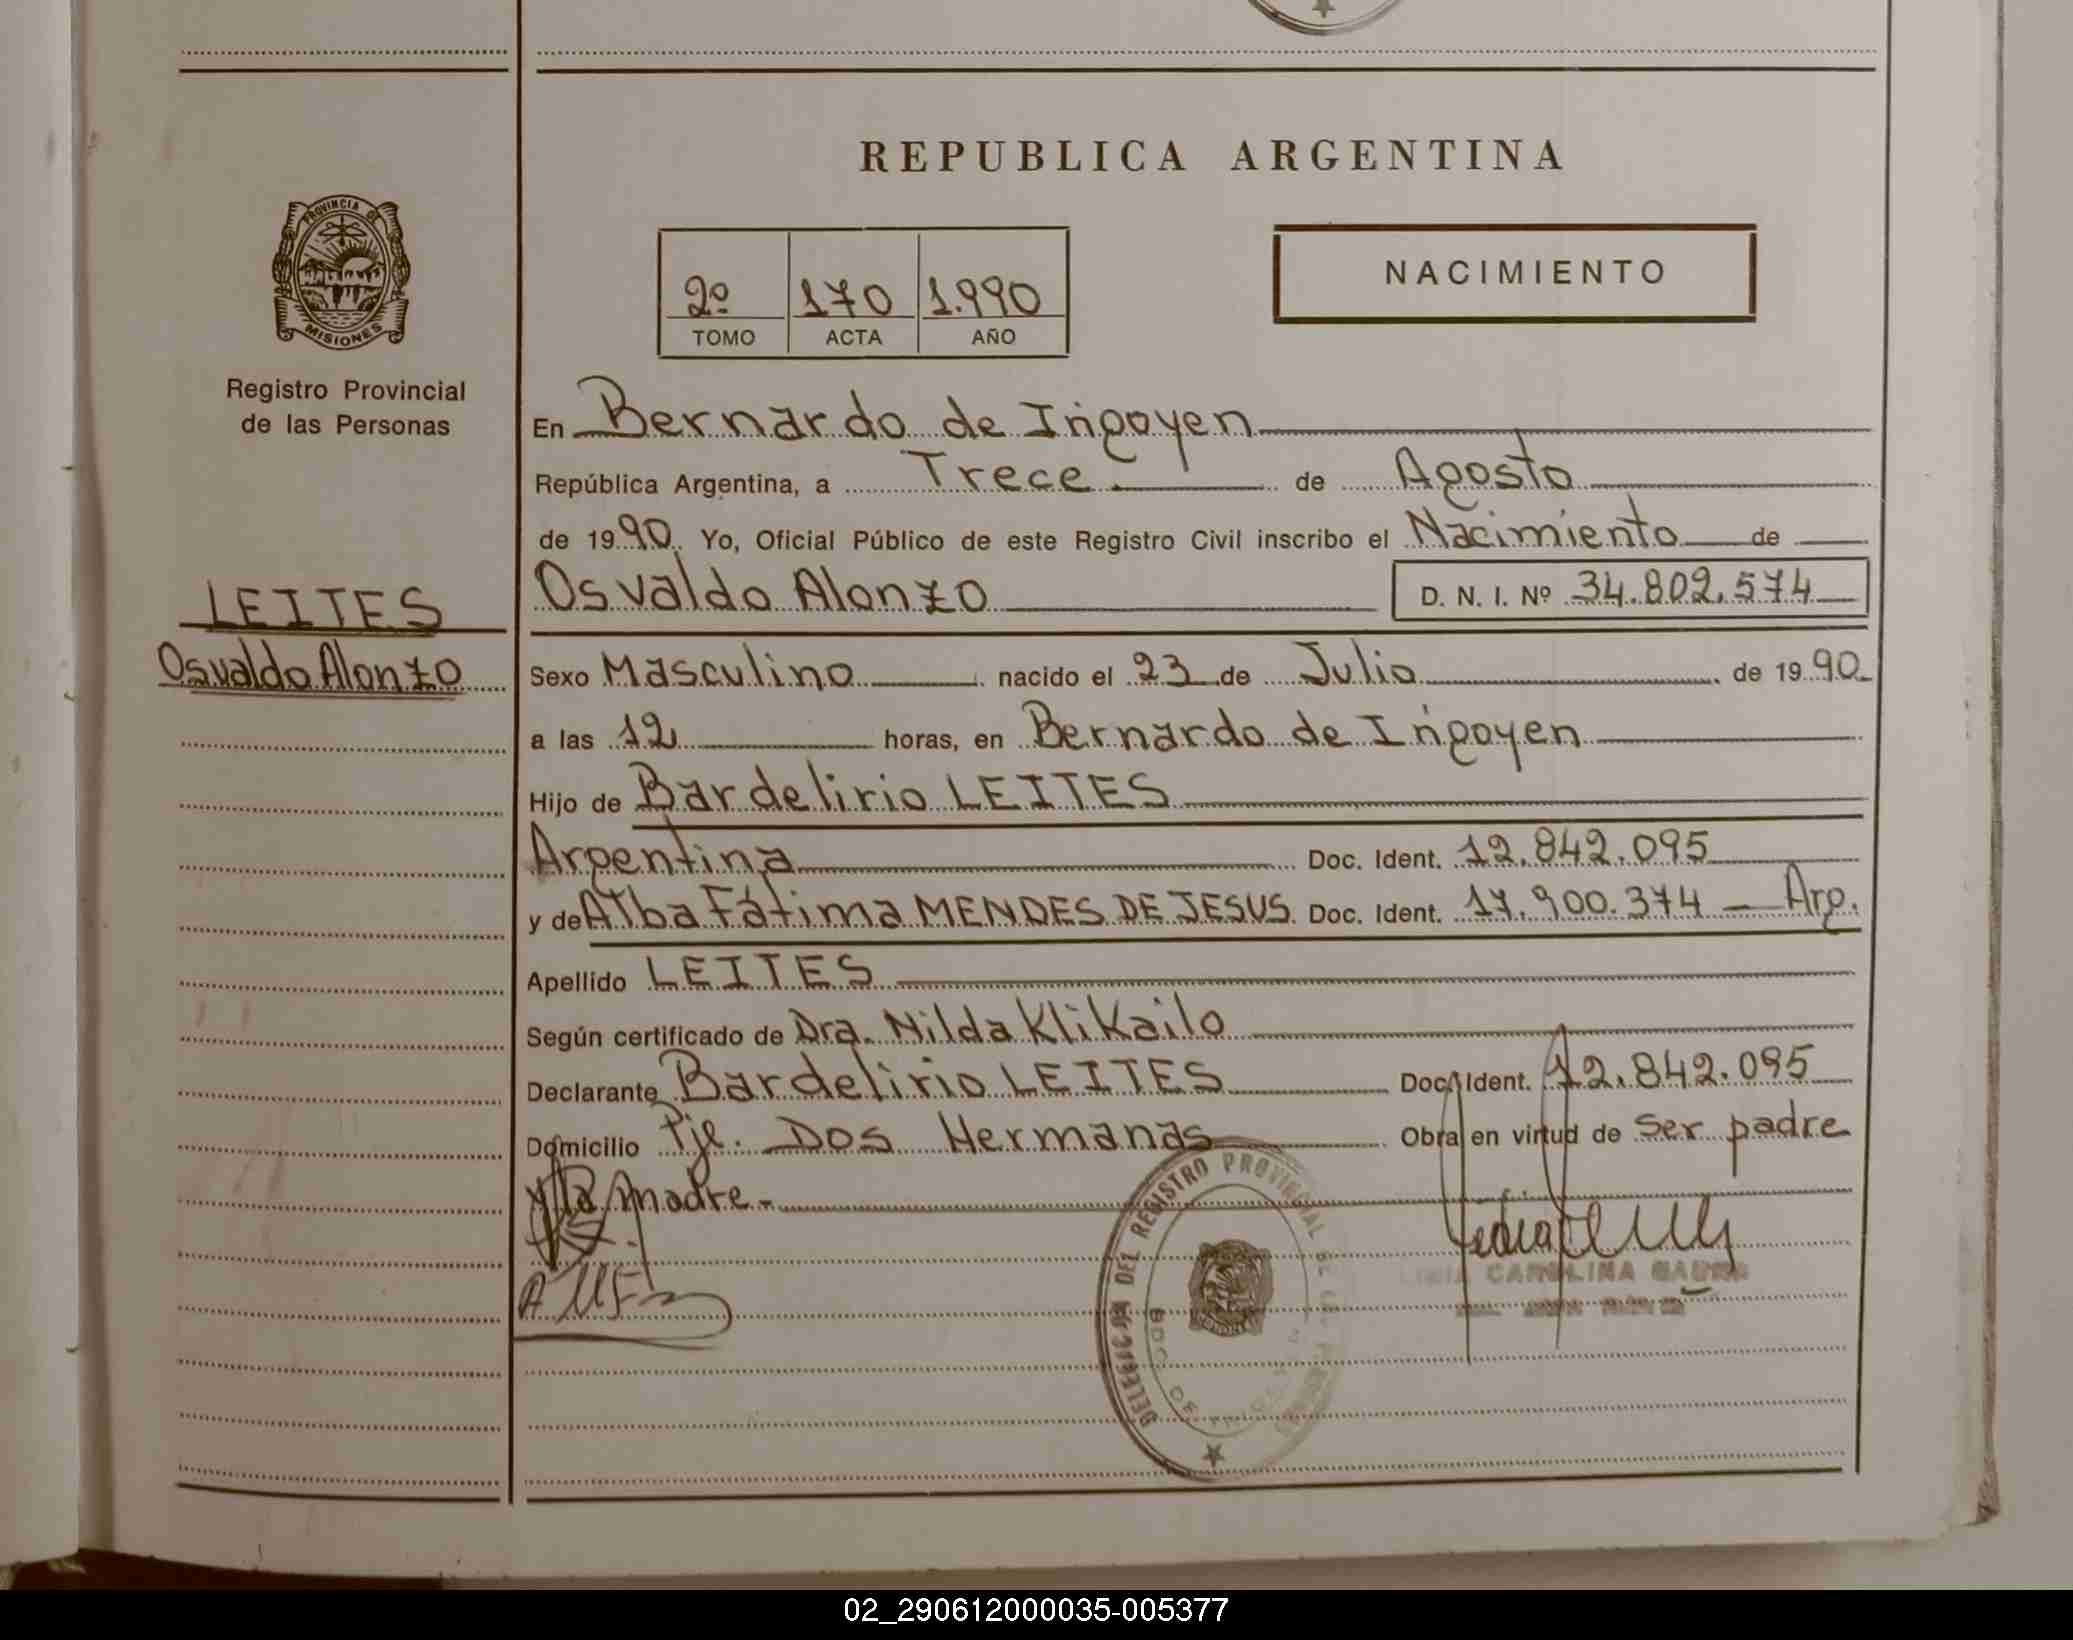 REPUBLICA ARGENTINA
PROVINCIA DE
MISIONES
Registro Provincial
de las Personas
2º 170 1.990
TOMO ACTA AÑO
NACIMIENTO
En Bernardo de Irigoyen
República Argentina, a Trece de Agosto
de 1990. Yo, Oficial Público de este Registro Civil inscribo el Nacimiento de
LEITES
Osvaldo Alonzo D. N. I. Nº 34.802.574
Osvaldo Alonzo
Sexo Masculino nacido el 23 de Julio de 1990
a las 12 horas, en Bernardo de Irigoyen
Hijo de Bardelirio LEITES
Argentina Doc. Ident. 12.842.095
y de Alba Fátima MENDES DE JESUS Doc. Ident. 17.900.374 — Arg.
Apellido LEITES
Según certificado de Dra. Nilda Klikailo
Declarante Bardelirio LEITES Doc. Ident. 12.842.095
Domicilio Pje. Dos Hermanas Obra en virtud de ser padre
y la madre.-
DELEGACION DEL REGISTRO PROVINCIAL DE LAS
BDO. DE IRIGOYEN
CAROLINA
02_290612000035-005377